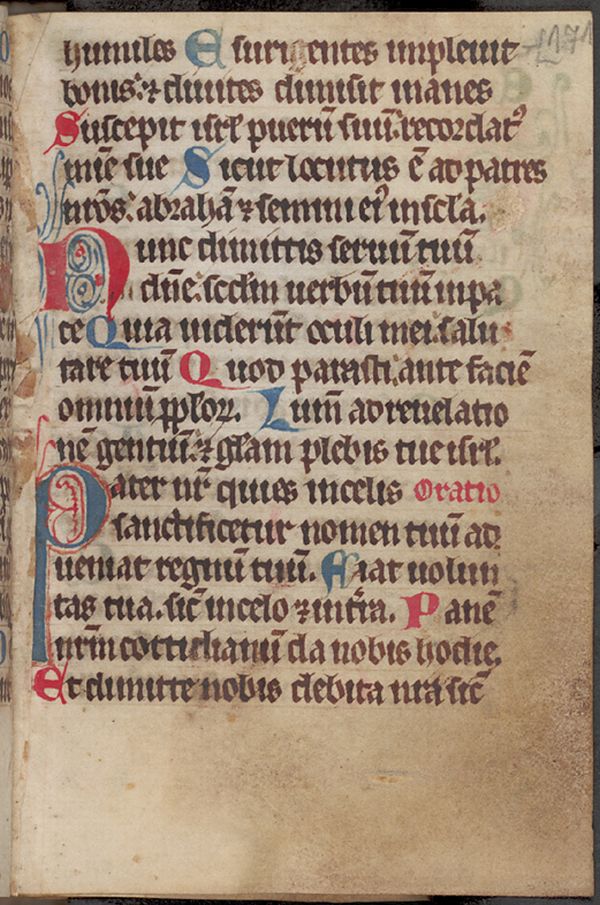 171
humiles Esurigentes impleuit
bonis. ⁊ diuites dimisit inanes
Suscepit isrl̄ puerū suū. recordatꝰ
mīe sue Sicut locutus ē ad patres
nr̄os. abrahā ⁊ semini eiꝰ in scl̄a.
Nunc dimittis seruū tuū
dn̄e. scdm uerbū tuū in pa
ce Quia uiderūt oculi mei. salu
tare tuū Quod parasti. ante faciē
omniū pp̄loꝝ. Lum̄ ad reuelatio
nē gentiū. ⁊ gl̄am plebis tue isrl̄.
Pater nr̄ qui es in celis Oratio
sanctificetur nomen tuū ad
ueniat regnū tuū. Fiat uolun
tas tua. sic̄ in celo ⁊ in tr̄a. Panē
nr̄m cottidianū da nobis hodie.
Et dimitte nobis debita nr̄a sic̄